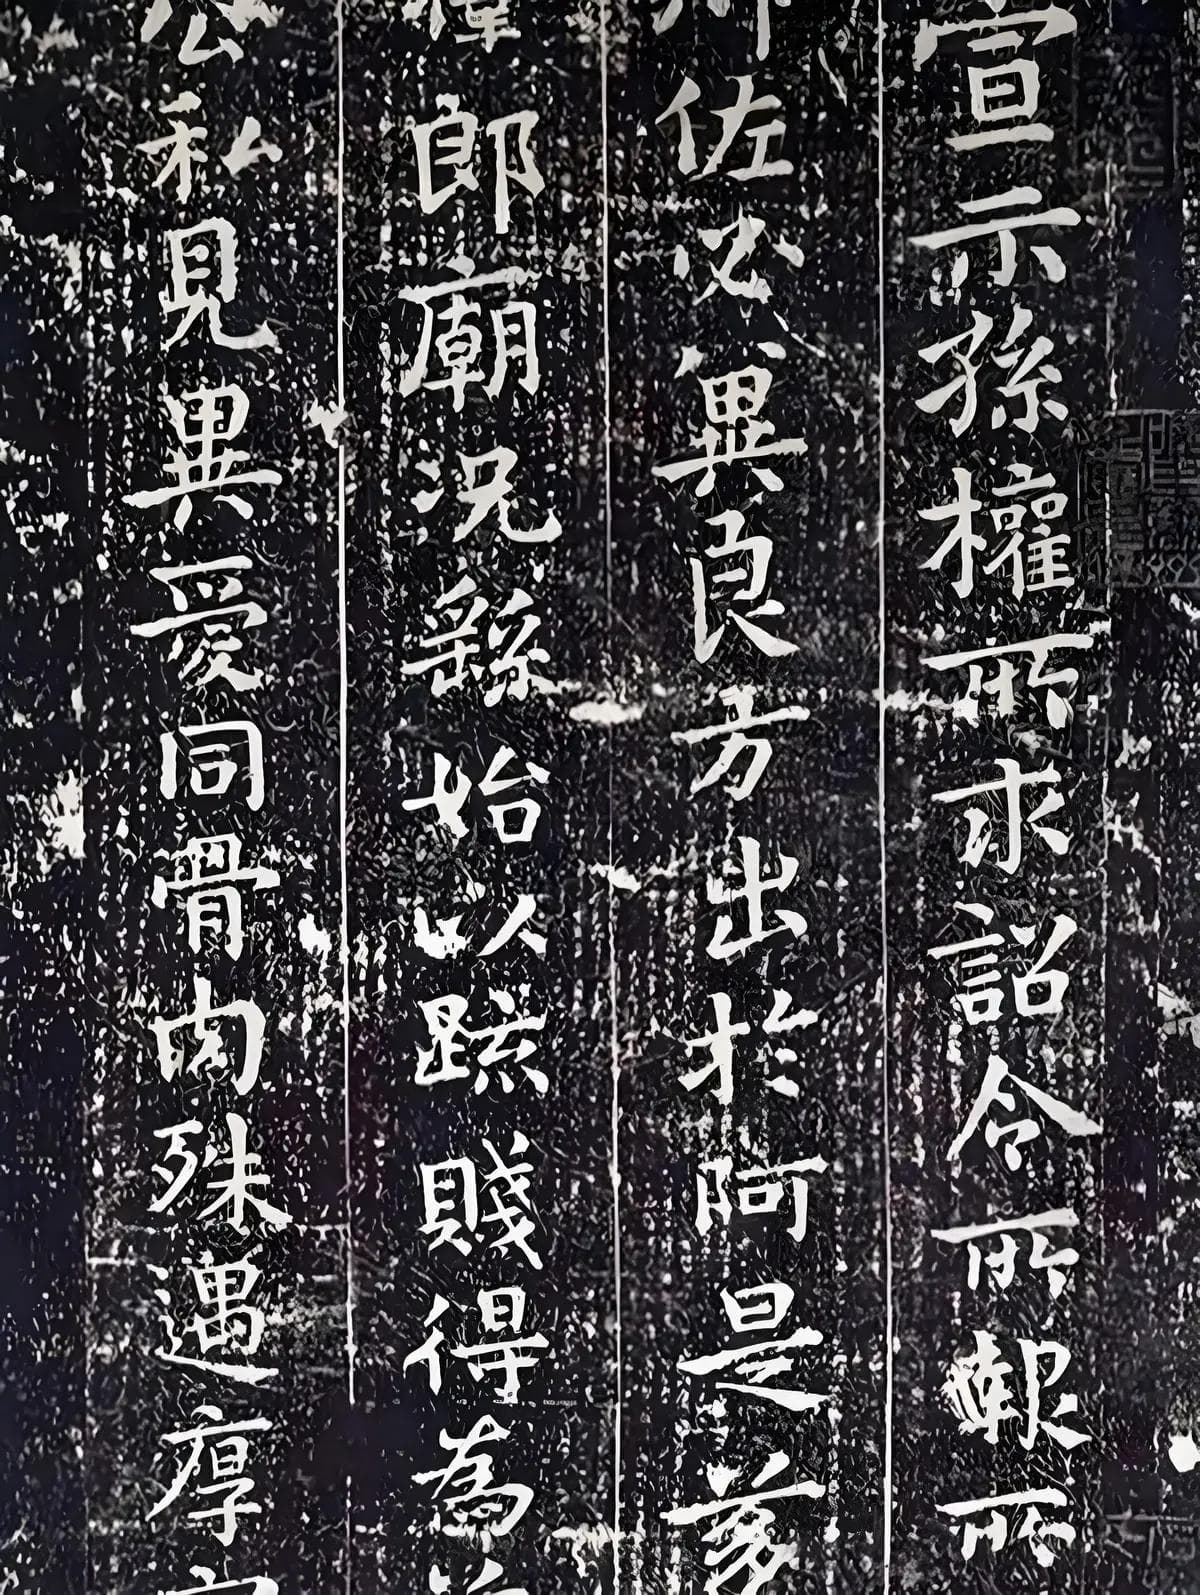 宣示孫權所求詔令所報所
佐必冀良方出於阿是芻
郎廟況繇始以疏賤得為
公私見異愛同骨肉殊遇厚